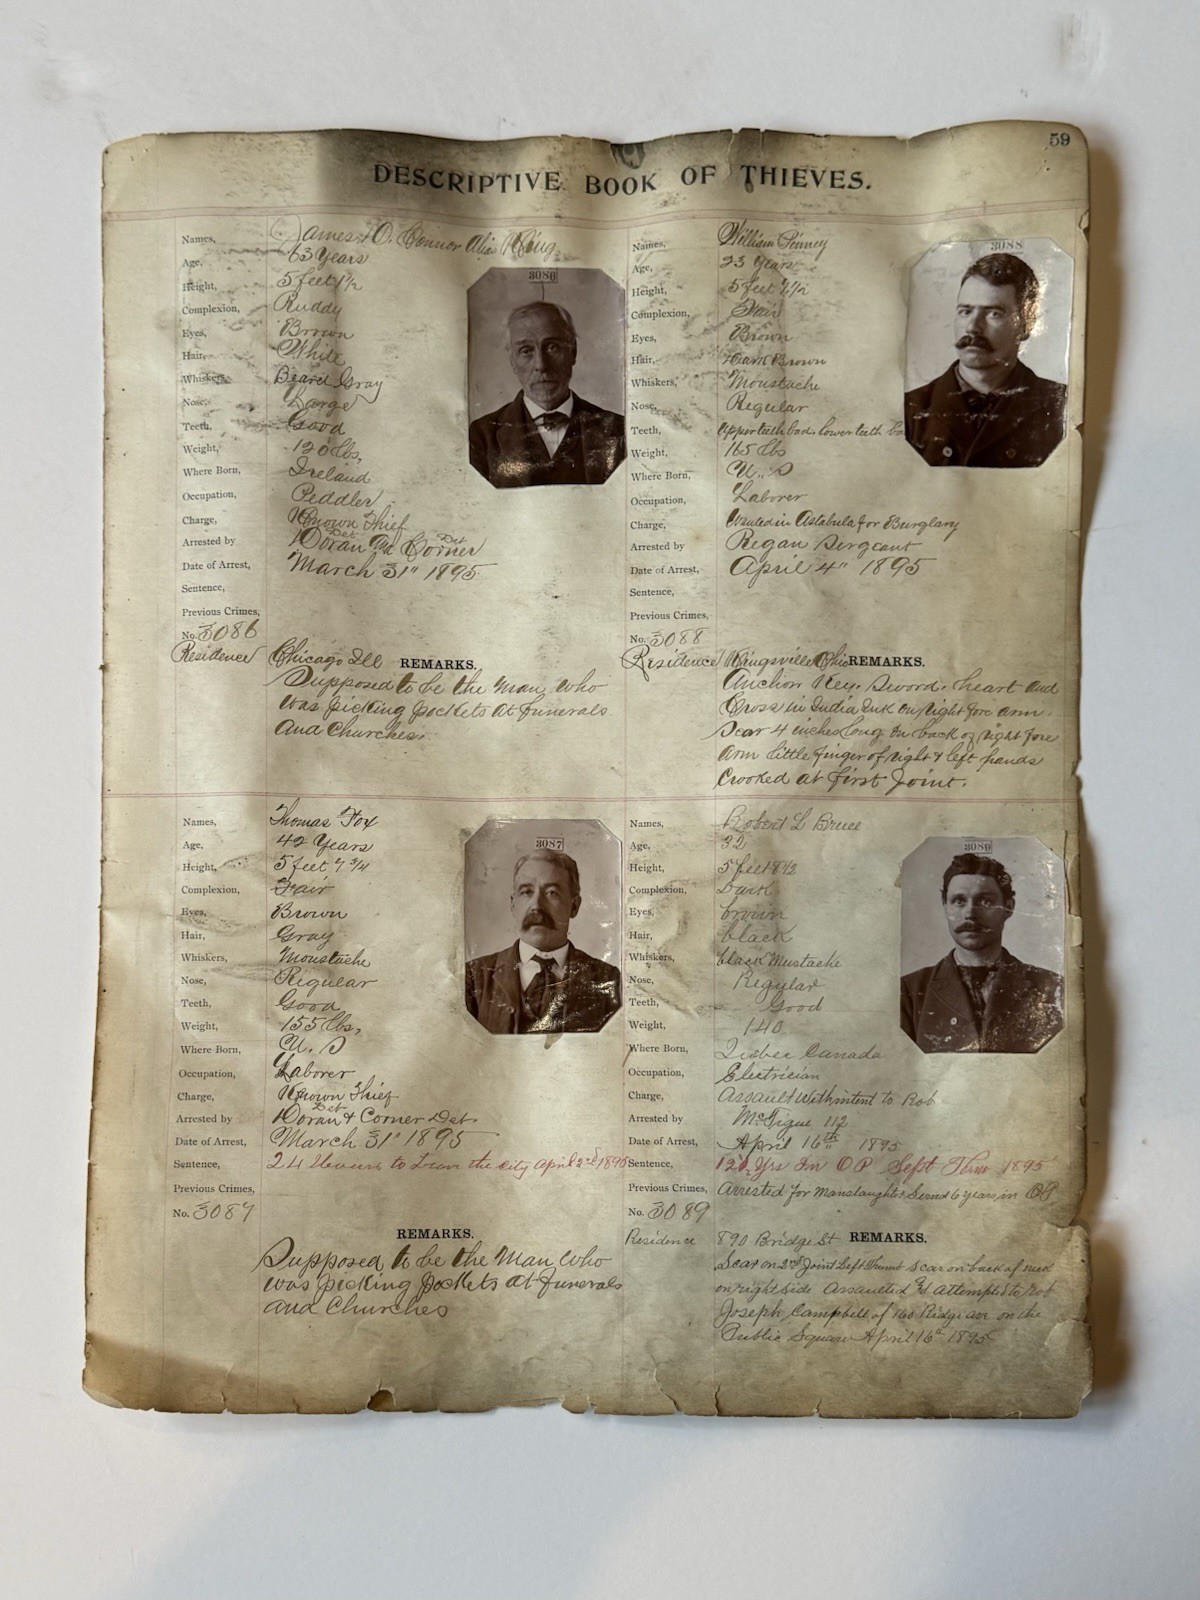 59
DESCRIPTIVE BOOK OF THIEVES.
Names, James O. Connor Alias King
Age, 63 Years
Height, 5 feet 1 1/2
Complexion, Ruddy
Eyes, Brown
Hair, White
Whiskers, Beard Gray
Nose, Large
Teeth, Good
Weight, 120 lbs,
Where Born, Ireland
Occupation, Peddler
Charge, Known Thief
Arrested by Doran Det and Corner Det
Date of Arrest, March 31" 1895
Sentence,
Previous Crimes,
No. 3086
Residence Chicago Ill REMARKS.
Supposed to be the Man Who
was picking pockets at funerals
and Churches.
3086
Names, William Pinney
Age, 23 Years
Height, 5 feet 7 1/2
Complexion, Fair
Eyes, Brown
Hair, Dark Brown
Whiskers, Moustache
Nose, Regular
Teeth, Upper teeth bad. lower teeth
Weight, 165 lbs
Where Born, U. S
Occupation, Laborer
Charge, Wanted in Astabula for Burglary
Arrested by Regan Sergeant
Date of Arrest, April 4" 1895
Sentence,
Previous Crimes,
No. 3088
Residence Kingsville Ohio REMARKS.
Anchor Key. Sword. heart and
Cross in India Ink on right fore arm.
Scar 4 inches long on back of right fore
arm little finger of right & left hands
Crooked at first Joint.
3088
Names, Thomas Fox
Age, 42 Years
Height, 5 feet 7 3/4
Complexion, Fair
Eyes, Brown
Hair, Gray
Whiskers, Moustache
Nose, Regular
Teeth, Good
Weight, 155 lbs,
Where Born, U. S
Occupation, Laborer
Charge, Known Thief
Arrested by Doran Det & Corner Det
Date of Arrest, March 31" 1895
Sentence, 24 Hours to Leave the city April 2nd 1895
Previous Crimes,
No. 3087
REMARKS.
Supposed to be the Man Who
was picking pockets at funerals
and Churches
3087
Names, Robert L Bruce
Age, 32
Height, 5 feet 8 1/2
Complexion, Dark
Eyes, brown
Hair, black
Whiskers, black Mustache
Nose, Regular
Teeth, Good
Weight, 140
Where Born, Qisbec Canada
Occupation, Electrician
Charge, Assault With intent to Rob
Arrested by McTigue 112
Date of Arrest, April 16th 1895
Sentence, Yrs In O P Sept Term 1895
Previous Crimes, Arrested for Manslaughter Served 6 years in OP
No. 3089
Residence 890 Bridge St REMARKS.
Scar on 2nd Joint Left Thumb Scar on back of neck
on right side Assaulted and attempted to rob
Joseph Campbell of 160 Ridge ave on the
Public Square April 16th 1895
3089